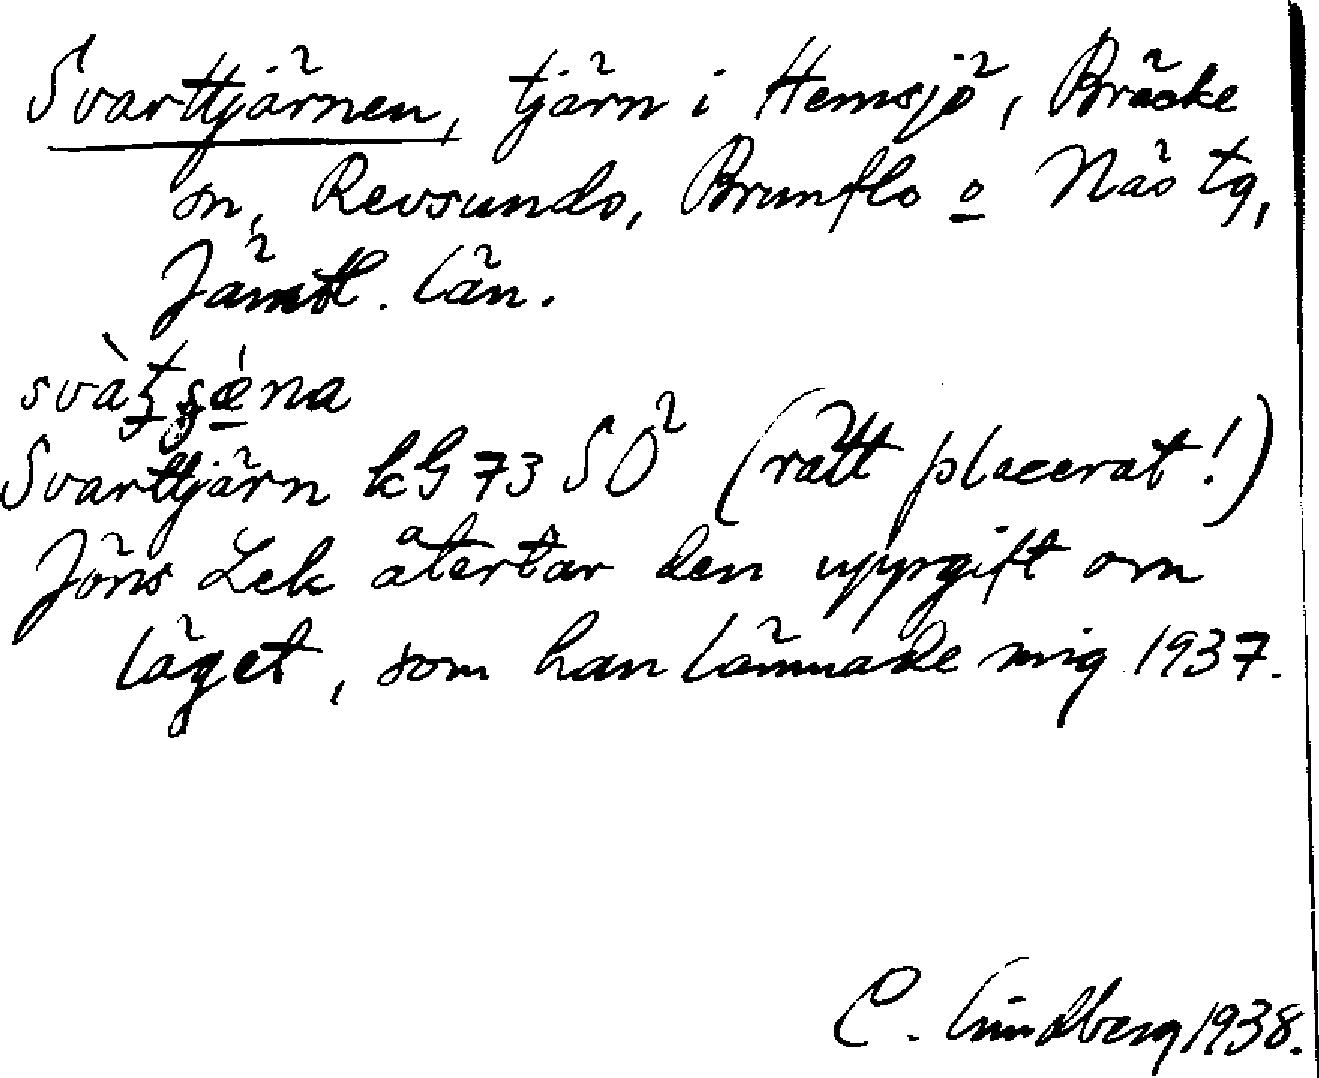 Svarttjärnen, tjärn i Hemsjö, Bräcke
sn, Revsunds, Brunflo o Näs tg,
Jämtl. län.
Svarttjärn kG 73 SÖ (rätt placerat!)
Jöns Lek återtar den uppgift om
läget, som han lämnade mig 1937.
C. Lindberg 1938.